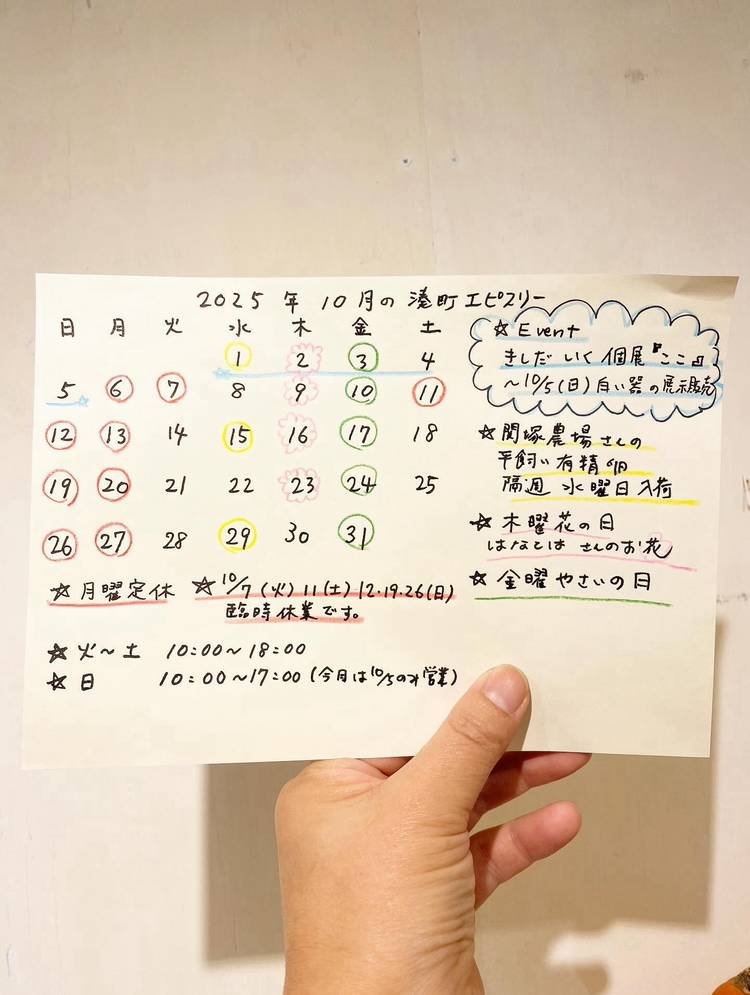 2025年10月の湊町エピスリー
日 月 火 水 木 金 土
1 2 3 4
5 6 7 8 9 10 11
12 13 14 15 16 17 18
19 20 21 22 23 24 25
26 27 28 29 30 31
☆月曜定休 ☆10/7(火)11(土)12.19.26(日)
臨時休業です。
☆火〜土 10:00〜18:00
☆日 10:00〜17:00(今月は10/5のみ営業)
☆Event
きしだいく個展『ここ』
〜10/5(日)白い器の展示販売
☆関塚農場さんの
平飼い有精卵
隔週 水曜日入荷
☆木曜花の日
はなとはさんのお花
☆金曜やさいの日